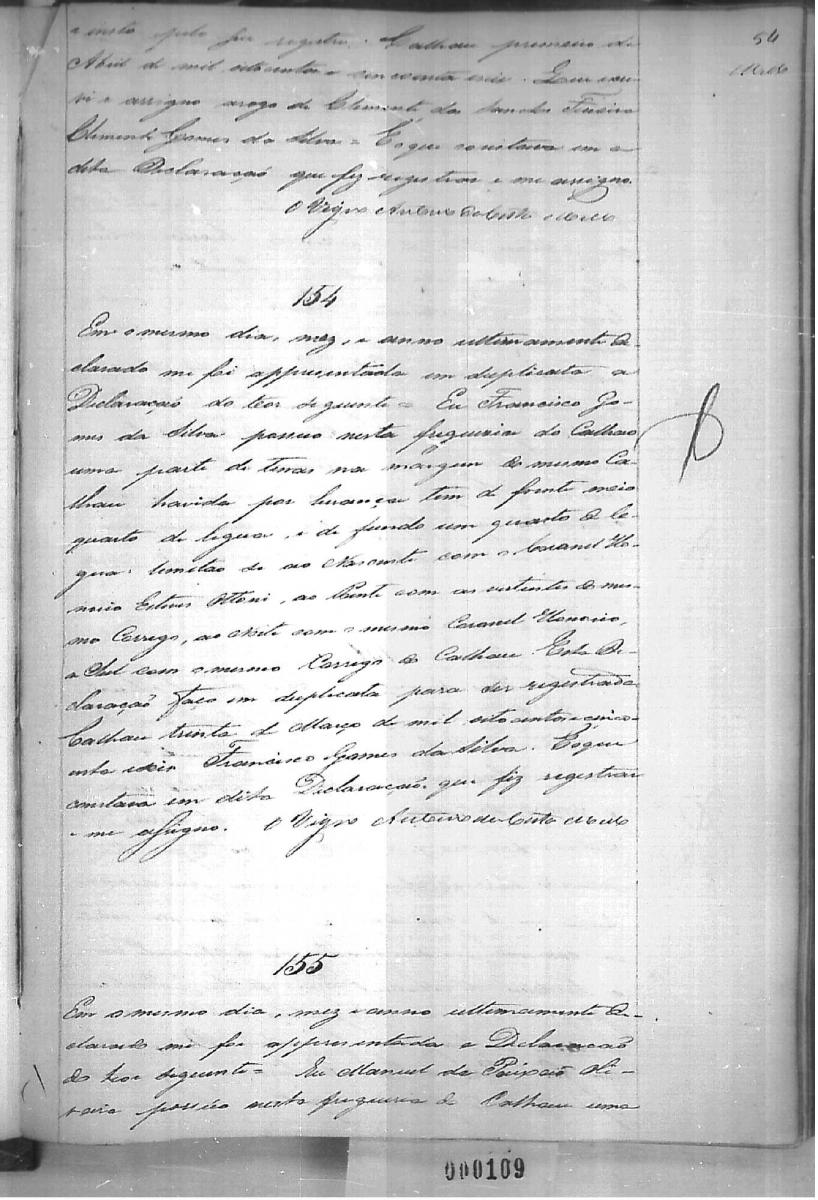 54
Mello
e insto pelo fiz registro. Calhau primeiro de
Abril de mil oitocentos e cincoenta e seis. Que escre-
vi e assigno arogo de Clemente dos Santos
Clemente Gomes da Silva = E o que constava em a
dita Declaração que fiz registrar e me assigno.
O Vigro Antonio da Costa Mello
154
Em o mesmo dia, mez, e anno ultimamente de-
clarado me foi appresentada em duplicata a
Declaração do teor seguinte = Eu Francisco Go-
mes da Silva possuo nesta freguezia do Calhao
uma parte de terras na margem do mesmo Ca-
lhau havida por herança tem de frente meio
quarto de legua, e de fundo um quarto de le-
gua: limitão se ao Nascente com o Coronel Ho-
norio Esteves Ottoni, ao Poente com as vertentes do mes-
mo Corrego, ao Norte com o mesmo Coronel Honorio,
o Sul com o mesmo Corrego do Calhau Esta De-
claração faço em duplicata para ser registrada
Calhau trinta de Março de mil oitocentos e cinco-
enta e seis Francisco Gomes da Silva. E o que
constava em dita Declaração que fiz registrar
e me assigno. O Vigro Antonio da Costa Mello
155
Em o mesmo dia, mez e anno ultimamente de-
clarado me foi appresentada a Declaração
do teor seguinte = Eu Manuel da Paixão Oli-
veira possuo nesta freguezia do Calhau uma
000109